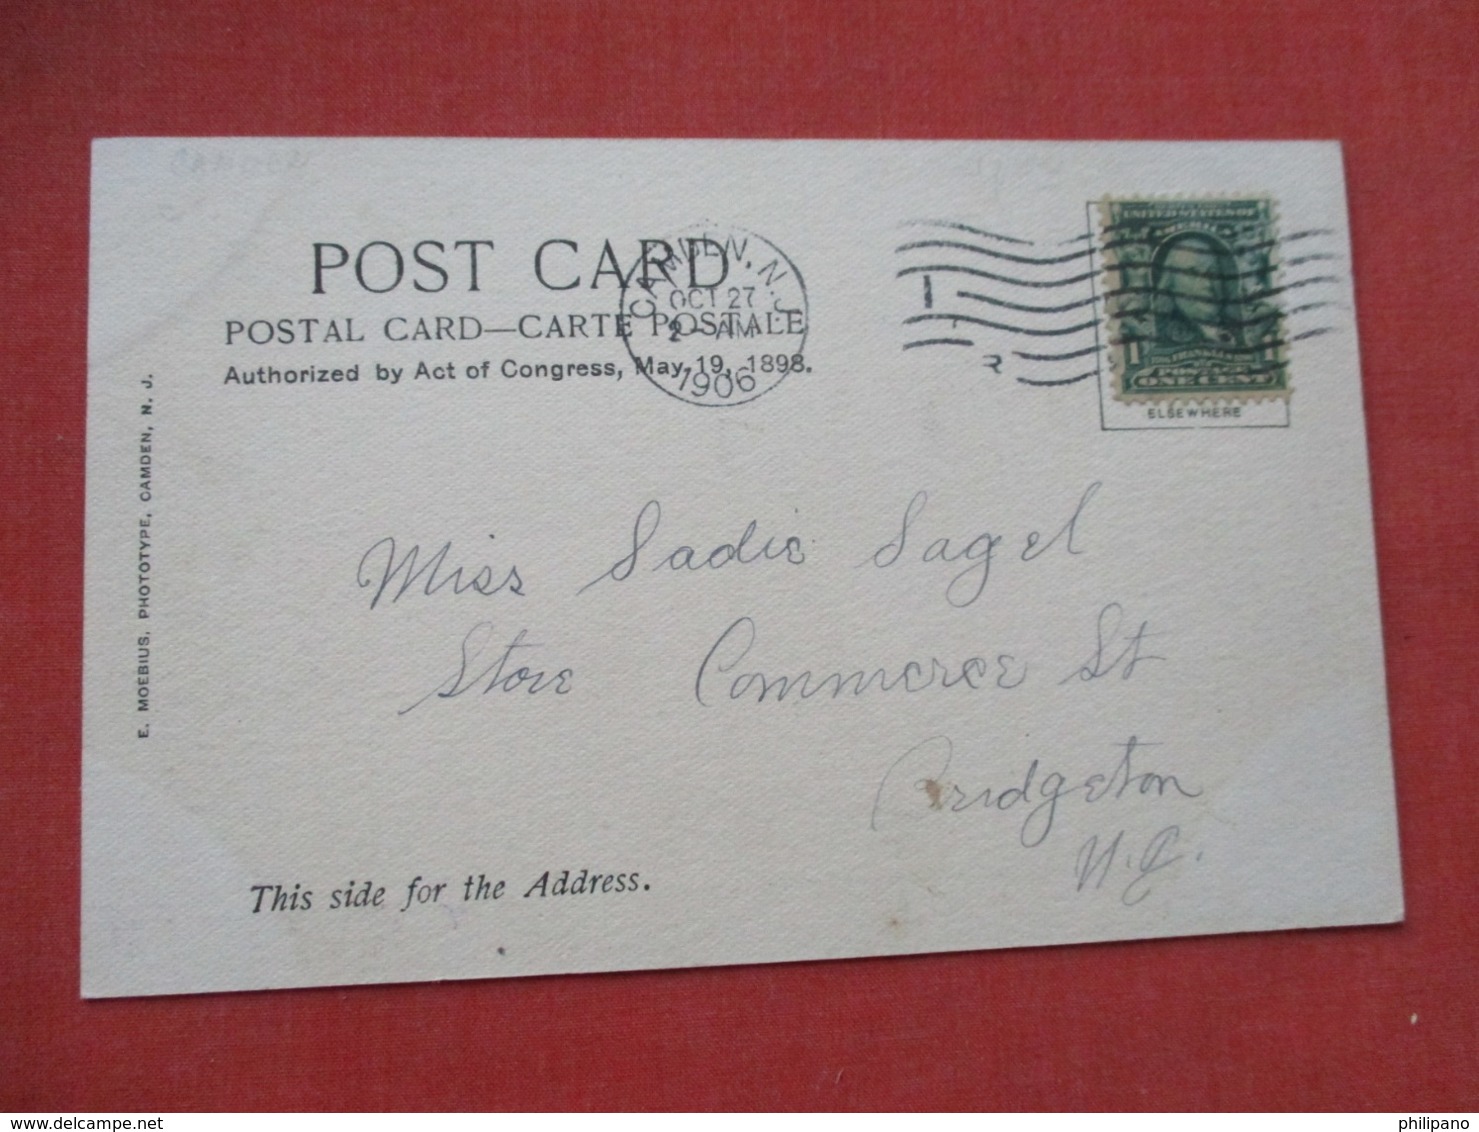 CAMDEN
POST CARD
POSTAL CARD—CARTE POSTALE
Authorized by Act of Congress, May 19, 1898.
CAMDEN, N. J.
OCT 27
2 - AM
1906
UNITED STATES OF
AMERICA
1 FRANKLIN 1
POSTAGE
ONE CENT
ELSEWHERE
E. MOEBIUS, PHOTOTYPE, CAMDEN, N. J.
Miss Sadie Sagel
Store Commerce St
Bridgeton
N.J.
This side for the Address.
delcampe.net
philipano